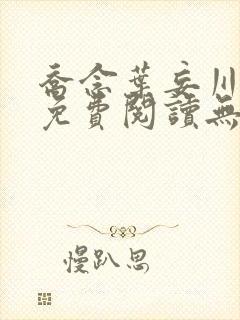 喬念葉妄川
免費閱讀無
慢趴思